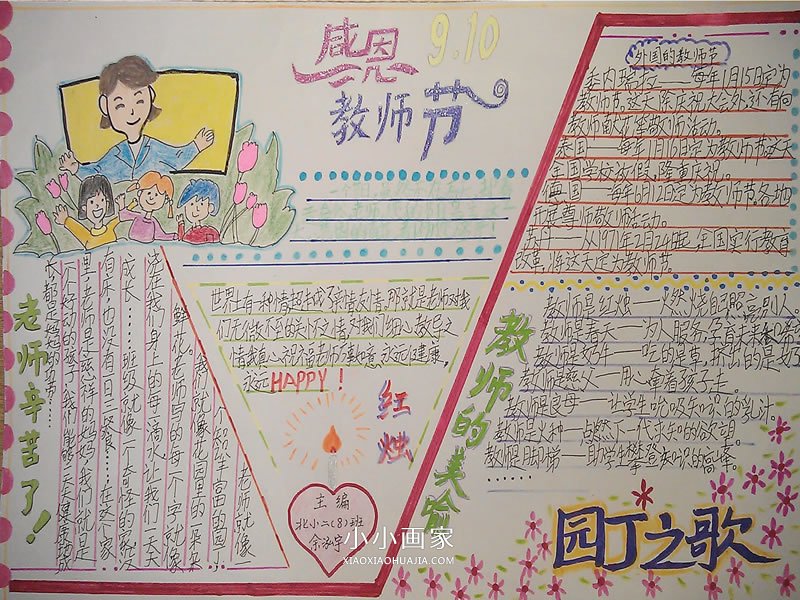 感恩
9.10
教师节
外国的教师节
委内瑞拉——每年1月15日定为
教师节,这天除庆祝大会外,还有向
教师献花等敬师活动。
泰国——每年1月16日定为教师节,这天
全国学校放假,隆重庆祝。
——每年6月12日定为教师节,各地
开展尊师敬师活动。
——从1971年2月24日起,全国实行教育
改革,将这天定为教师节。
教师的美
教师是红烛——燃烧的照亮别人。
教师是春天——为人服务,孕育未来和希
教师是奶牛——吃的是草,挤出的是奶
教师是——用心牵着孩子走。
教师是良母——让学生吮吸知识的乳汁。
教师是火种——点燃下一代求知的欲望。
教师是脚梯——助学生攀登知识的高峰。
......
园丁之歌
世界上有一种情,超越了亲情、友情,那就是老师对我
们无微不至的关怀之情,对我们细心教导之
情,我真心祝福老师万事如意,永远健康,
永远HAPPY!
红烛
主编
北小二(8)班
余
老师辛苦了!
老师就像一
个知识丰富的园丁,
我们就像花园里的一朵朵
鲜花。老师写的每一个字就像
浇在我们身上的每一滴水,让我们一天天
成长……班级就像一个奇怪的家,没
有床,也没有日日三餐……在这个家
里,老师是慈祥的妈妈,我们就是
一个好动的孩子,我们
小小画家
XIAOXIAOHUAJIA.COM